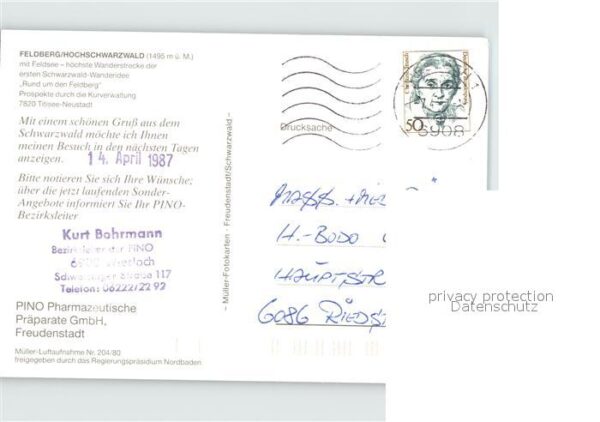 FELDBERG/HOCHSCHWARZWALD (1495 m ü. M.)
mit Feldsee – höchste Wanderstrecke der
ersten Schwarzwald-Wanderidee
„Rund um den Feldberg"
Prospekte durch die Kurverwaltung
7820 Titisee-Neustadt
Mit einem schönen Gruß aus dem
Schwarzwald möchte ich Ihnen
meinen Besuch in den nächsten Tagen
anzeigen.
14. April 1987
Bitte notieren Sie sich Ihre Wünsche;
über die jetzt laufenden Sonder-
Angebote informiert Sie Ihr PINO-
Bezirksleiter
Kurt Bohrmann
Bezirksleiter der PINO
Wiesloch
Schwetzinger Straße 117
Telefon: 06222/22 92
PINO Pharmazeutische
Präparate GmbH,
Freudenstadt
Müller-Luftaufnahme Nr. 204/80
freigegeben durch das Regierungspräsidium Nordbaden.
– Müller-Fotokarten · Freudenstadt/Schwarzwald –
Drucksache
50
6908
MASS.
H.-BODO
HAUPTSTR
6086 RIEDST
privacy protection
Datenschutz